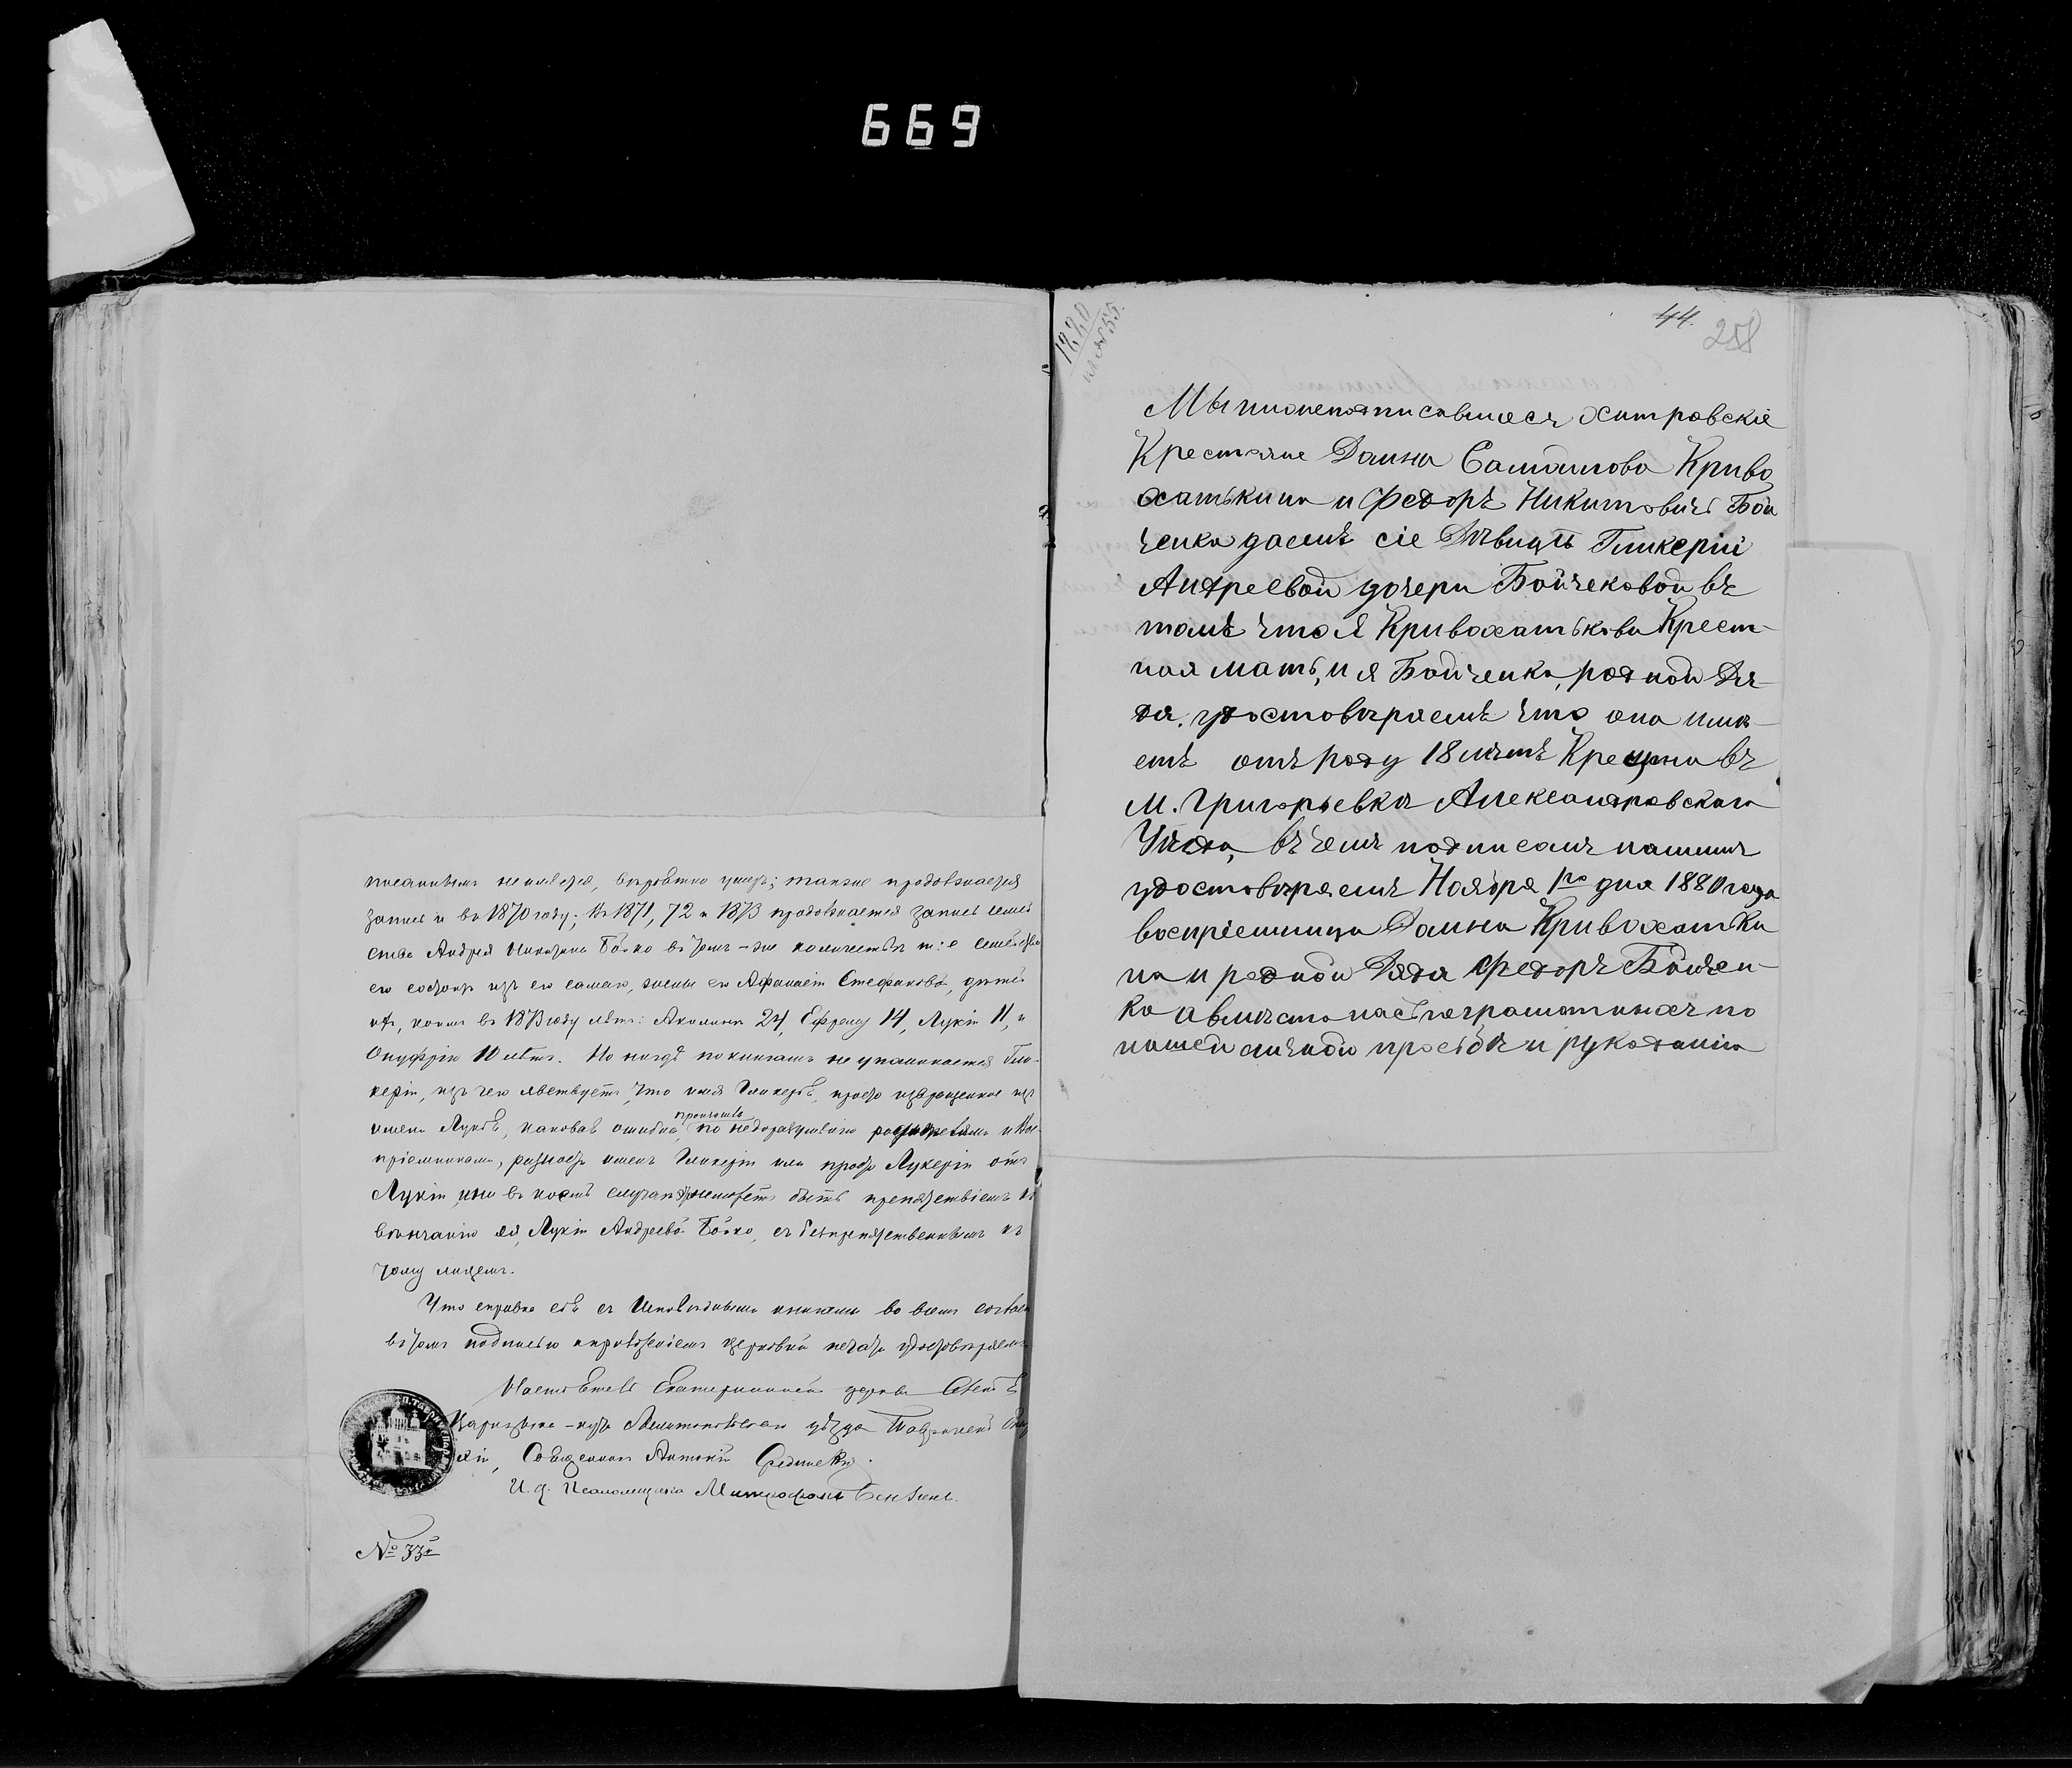 669
писанныхъ не имѣется, вѣроятно умеръ; также продолжается
запись и въ 1870 году; въ 1871, 72 и 1873 продолжается запись семей
ства Андрея Никитина Бойко въ томъ-же количествѣ т: е семейство
его состоитъ изъ его самаго, жены его Афанасіи Стефановой, дѣтей
ихъ, коимъ въ 1873 году лѣтъ: Акилинѣ 24, Ефрему 14, Лукіи 11, и
Онуфрію 10 лѣтъ. Но нигдѣ по книгамъ не упоминается Гли-
керіи, изъ чего явствуетъ, что имя Гликерія, просто извращенное изъ
имени Лукія, каковая ошибка произошла по недоразумѣнію и Вос-
пріемниками, разность именъ Гликеріи или просто Лукеріи отъ
Лукіи, ни въ коемъ случаѣ не можетъ быть препятствіемъ къ
вѣнчанію ея, Лукіи Андреевой Бойко, съ безпрепятственнымъ къ
тому лицемъ.
Что справка сія съ Исповѣдными книгами во всемъ
въ томъ подписью и приложеніемъ церковной печати удостовѣряемъ
Настоятель Екатерининской церкви
Мелитопольскаго уѣзда Таврической
Священникъ Антоній
И. д. Псаломщика Митрофанъ
№ 33й
1880
44.
258
Мы нижеподписавшіеся Хитровскіе
Крестьяне Домна Самойлова Криво
хатькина и Федоръ Никитовичъ Бой
ченко даемъ сіе Дѣвицѣ Гликеріи
Андреевой дочери Бойчековой въ
томъ что я Кривохатькова Крест-
ная мать, и я Бойченко, родной Дя-
дя. удостовѣряемъ что она имѣ-
етъ отъ роду 18 лѣтъ Крещена въ
м. Григорьевкѣ Александровскаго
Уѣзда, въ чемъ подписомъ нашимъ
удостовѣряемъ Ноября 1го дня 1880 года
воспріемница Домна Кривохатьки
на и родной Дядя Федоръ Бойчен-
ко а вмѣсто насъ неграмотныхъ по
нашей личной просьбѣ и рукоданію